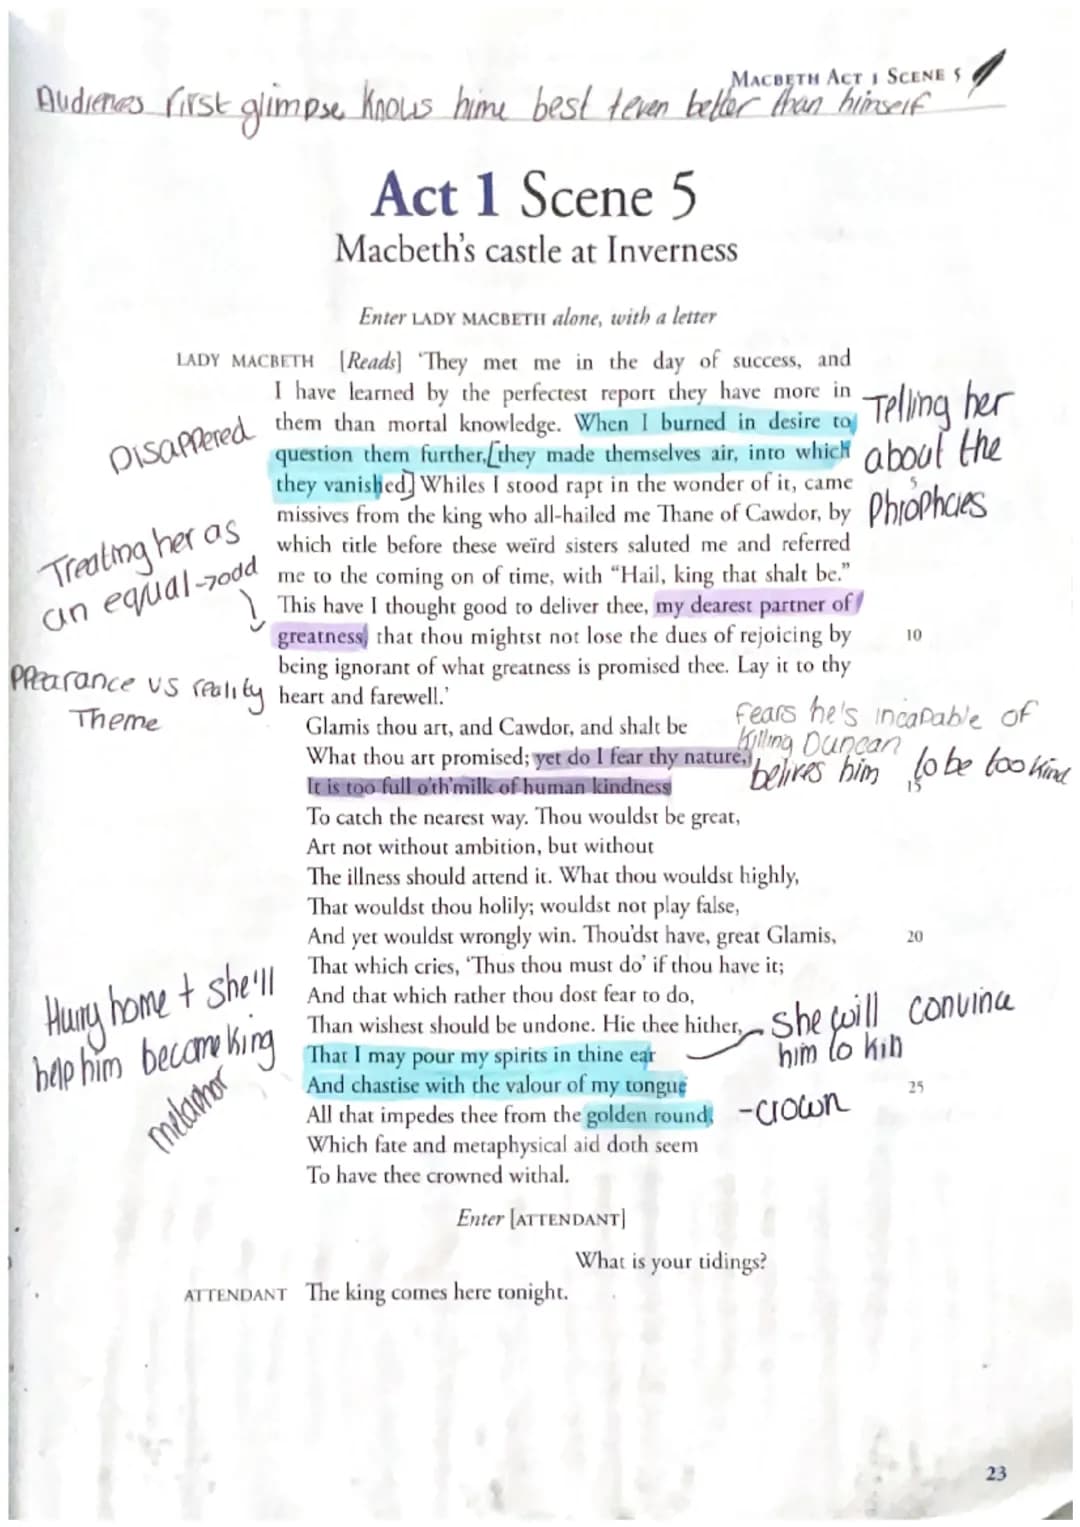 MACBETH ACT 1 SCENE 5
Audiences first glimpse Knows hime best + even better than himself
Act 1 Scene 5
Macbeth's castle at Inverness
Enter LADY MACBETH alone, with a letter
LADY MACBETH [Reads] 'They met me in the day of success, and
I have learned by the perfectest report they have more in
them than mortal knowledge. When I burned in desire to
question them further, [they made themselves air, into which
they vanished.] Whiles I stood rapt in the wonder of it, came
missives from the king who all-hailed me Thane of Cawdor, by
which title before these weïrd sisters saluted me and referred
me to the coming on of time, with “Hail, king that shalt be.”
This have I thought good to deliver thee, my dearest partner of
greatness, that thou mightst not lose the dues of rejoicing by
being ignorant of what greatness is promised thee. Lay it to thy
heart and farewell.'
Glamis thou art, and Cawdor, and shalt be
What thou art promised; yet do I fear thy nature,
It is too full o'th'milk of human kindness
To catch the nearest way. Thou wouldst be great,
Art not without ambition, but without
The illness should attend it. What thou wouldst highly,
That wouldst thou holily; wouldst not play false,
And yet wouldst wrongly win. Thou'dst have, great Glamis,
That which cries, 'Thus thou must do' if thou have it;
And that which rather thou dost fear to do,
Than wishest should be undone. Hie thee hither,
That I may pour my spirits in thine ear
And chastise with the valour of my tongue
All that impedes thee from the golden round,
Which fate and metaphysical aid doth seem
To have thee crowned withal.
Enter [ATTENDANT]
What is your tidings?
ATTENDANT The king comes here tonight.
5
10
15
20
25
Disappered
Treating her as
an equal → odd
PPearance vs reality
Theme
Hurry home + she'll
help him become king
metaphor
Telling her
about the
Phrophcies
Fears he's incapable of
Killing Duncan
belives him to be too kind
She will convince
him to kill
- crown
23